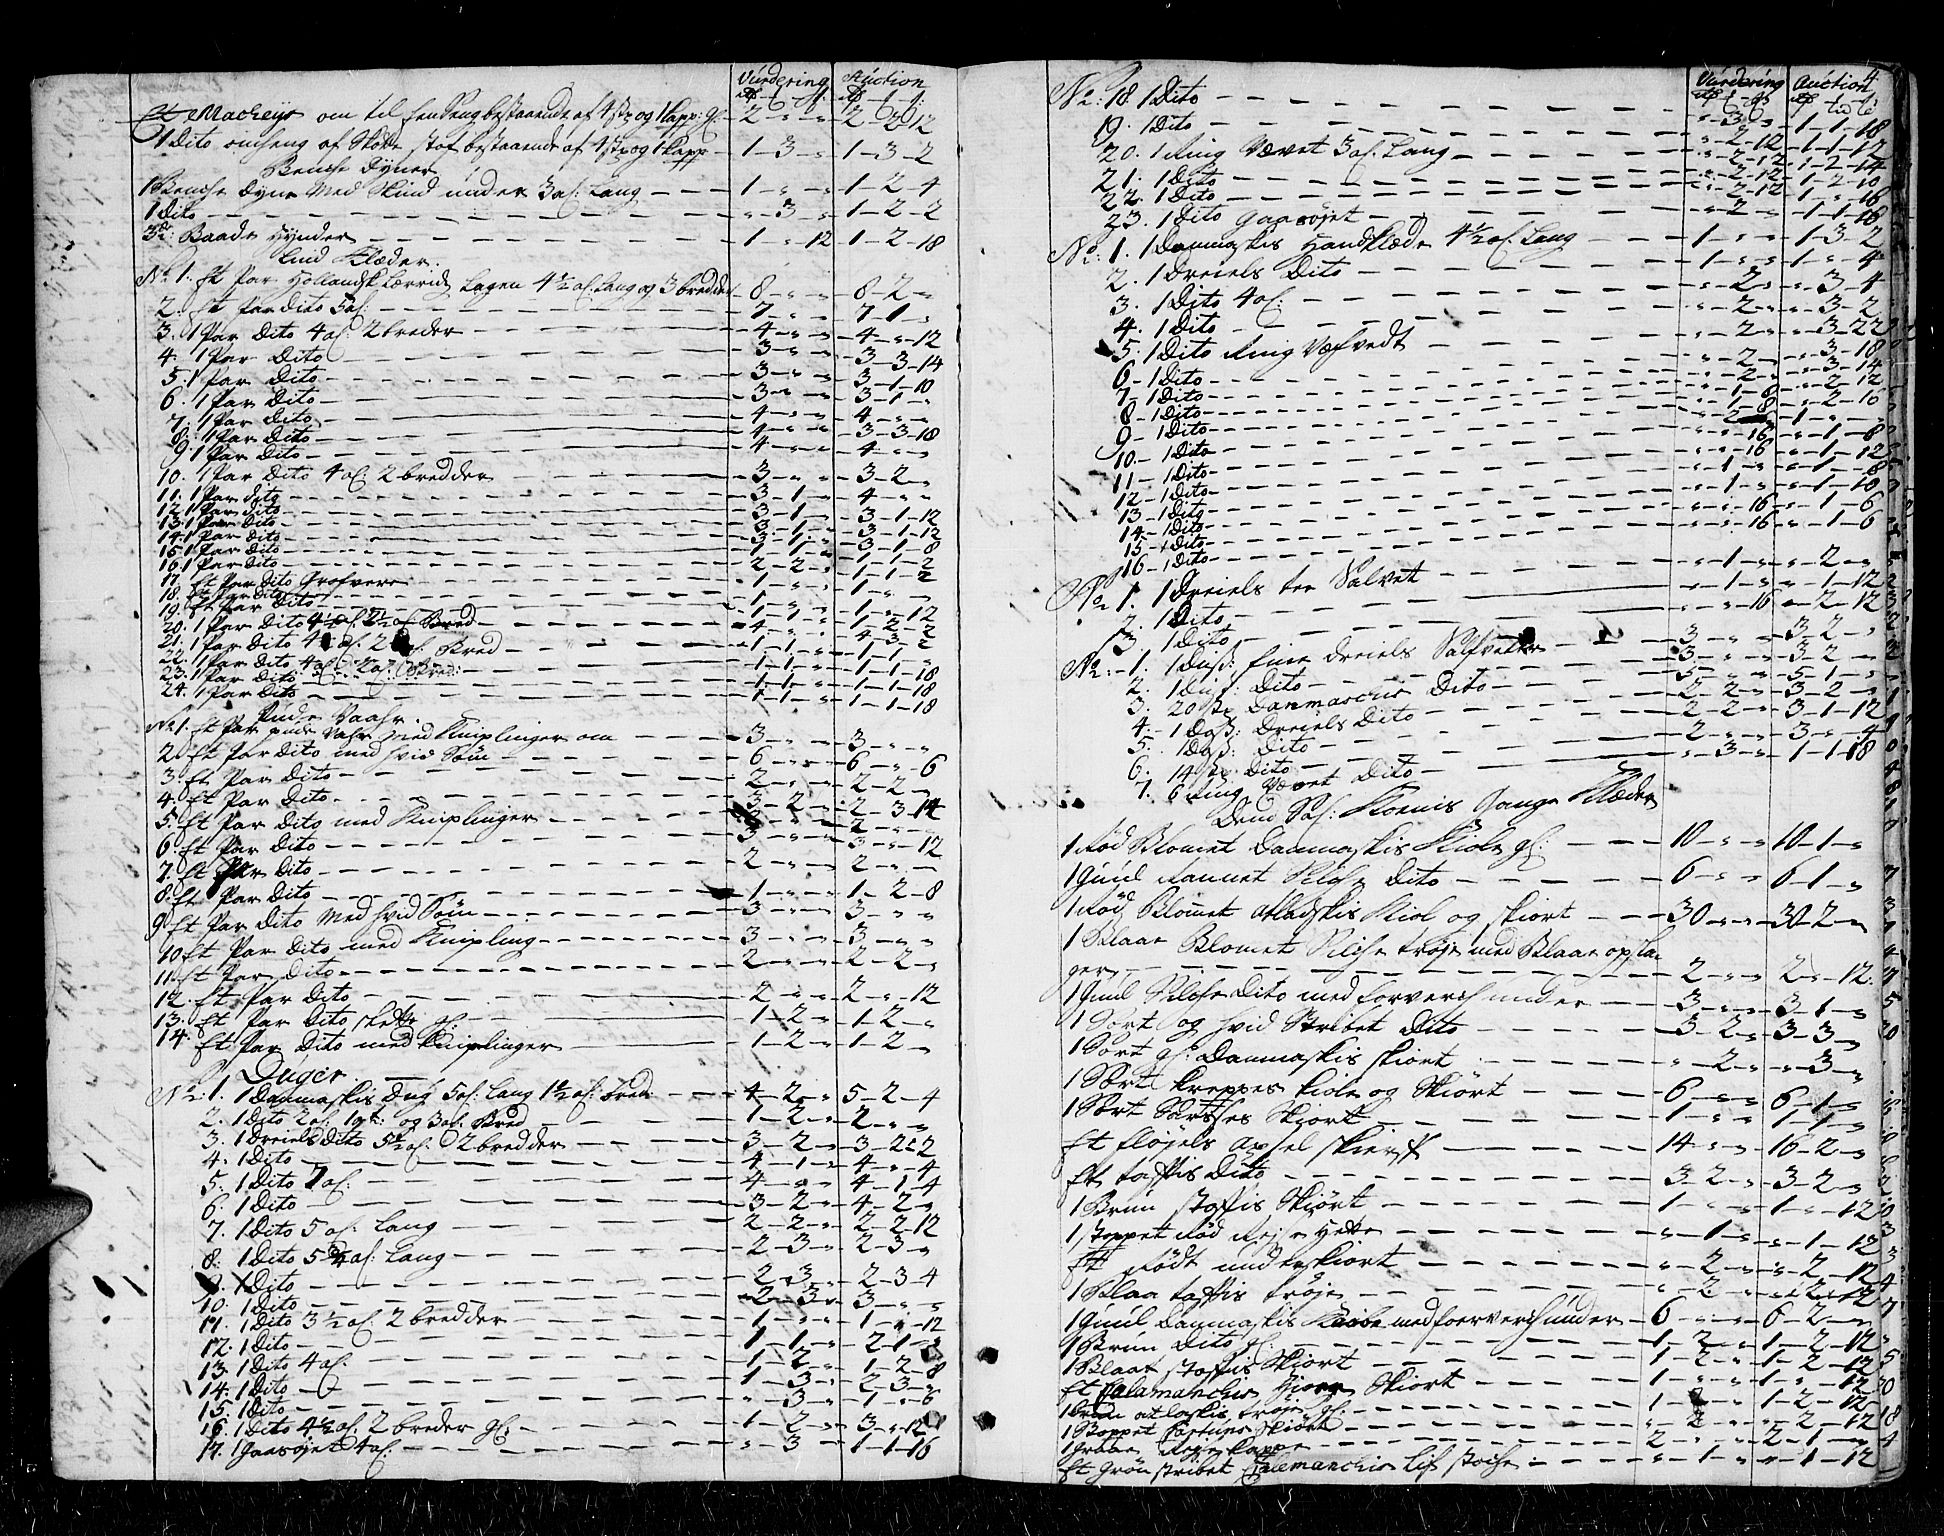 Vurdering Auction
Et Macheys om til en Seng bestaaende af 4 st: og 1 Kapp: gl: 2 - „ - „ 2 - 2 - 12
1 Dito omheng af Stof bestaaende af 4 st: og 1 Kapp 1 - 3 - „ 1 - 3 - 2
Benche Dyner
1 Benche Dyne Med Skind under 3 al: Lang 1 - „ - „ 1 - 2 - 4
1 Dito „ - 3 - „ 1 - 2 - 2
3de Baade Hynder 1 - „ - 12 1 - 2 - 18
Lind Klæder.
No 1. Et Par Hollandsk Lærrids Lagen 4 1/2 al: Lang og 3 bredder 8 - „ - „ 8 - 2 - „
2. Et Par Dito 5 al: 7 - „ - „ 7 - 1 - „
3. 1 Par Dito 4 al: 2 breder 4 - „ - „ 4 - „ - 12
4. 1 Par Dito 3 - „ - „ 3 - 3 - 14
5. 1 Par Dito 3 - „ - „ 3 - 1 - 10
6. 1 Par Dito 3 - „ - „ 3 - 1 - „
7. 1 Par Dito 4 - „ - „ 4 - „ - „
8. 1 Par Dito 4 - „ - „ 3 - 3 - 18
9. 1 Par Dito 4 - „ - „ 4 - „ - „
10. 1 Par Dito 4 al: 2 bredder 3 - „ - „ 3 - 2 - „
11. 1 Par dito 3 - 1 - „ 4 - „ - „
12. 1 Par dito 3 - 1 - „ 3 - 1 - 12
13. 1 Par dito 3 - 1 - „ 3 - 1 - 12
14. 1 Par dito 3 - 1 - „ 3 - 1 - 8
15. 1 Par dito 1 - 1 - „ 1 - 1 - 2
16. 1 Par dito 2 - 2 - „ 1 - 1 - 2
17. Et Par Dito Grofvere 1 - „ - „ 1 - „ - „
18. Et Par Dito
19. Et Par Dito
20. 1 Par Dito 4 1/2 al: 2 1/2 al: Bred
21. 1 Par Dito 4 al: 2 al: Bred
22. 1 Par Dito 4 al: 2 al: Bred:
23. 1 Par Dito 1 - 1 - „ 1 - 1 - 18
24. 1 Par Dito 1 - 1 - „ 1 - 1 - 18
Pude Vaahr.
No 1. Et Par pude Vahr med Kniplinger om 3 - „ - „ 3 - „ - „
2. Et Par Dito med hvid Søm 6 - „ - „ 6 - „ - 6
3. Et Par Dito 2 - „ - „ 2 - 2 - „
4. Et Par Dito 3 - 2 - „ 2 - 3 - 14
5. Et Par Dito med Kniplinger 2 - „ - „
6. Et Par Dito 3 - „ - „ 3 - „ - 12
7. Et Par Dito 2 - „ - „ 2 - „ - „
8. Et Par Dito 1 - „ - „ 1 - 2 - 8
9. Et Par Dito Med hvid Søm 3 - „ - „ 3 - „ - „
10. Et Par Dito med Knipling 3 - „ - „ 3 - „ - „
11. Et Par Dito 2 - „ - „ 2 - 2 - „
12. Et Par Dito 2 - „ - „ 2 - „ - 12
13. Et Par Dito slette gl: 1 - 2 - „ 1 - 2 - „
14. Et Par Dito med Kniplinger 1 - 2 - „ 1 - 2 - „
Duger
No: 1. 1 Danmaskis Dug 5 al: Lang 1 1/2 al: bred 4 - 2 - „ 5 - 2 - 4
2. 1 Dito 2 al: 1 qt: og 3 al: Bred 1 - 2 - „ 2 - „ - „
3. 1 Dreiels Dito 5 1/2 al: 2 bredder 3 - 2 - „ 3 - 2 - 2
4. 1 Dito 4 - 1 - „ 4 - „ - 4
5. 1 Dito 7 al: 4 - „ - „ 4 - 1 - 4
6. 1 Dito 3 - 2 - „ 4 - 2 - „
7. 1 Dito 5 al: Lang 2 - 2 - „ 2 - 2 - 12
8. 1 Dito 5 3/4 al: Lang 2 - 3 - „ 2 - 3 - „
9. 1 Dito 2 - 3 - „ 2 - 3 - 4
10. 1 Dito 2 - 3 - „ 3 - „ - „
11. 1 Dito 3 1/2 al: 2 bredder 1 - „ - „ 1 - „ - 12
12. 1 Dito 1 - 1 - „ 2 - 1 -
13. 1 Dito 4 al: 1 - 2 - „ 1 - 2 - 8
14. 1 Dito 1 - 3 - „ 2 - 3 - „
15. 1 Dito „ - 3 - „ 1 - „ - 6
16. 1 Dito 4 1/2 al: 2 breder gl: 1 - 2 - „ 3 - „ - 12
17. 1 Gaasøjet 4 al: „ - 3 - „ 1 - 1 - 16
4
Vurdering Auction
No: 18. 1 Dito „ - 3 - „ 1 - 1 - 18
19. 1 Dito „ - 2 - 12 1 - 1 - 12
20. 1 Ring Vævet 3 al: Lang „ - 2 - 12 1 - 2 - 14
21. 1 Dito „ - 2 - 12 1 - 2 - 10
22. 1 Dito „ - 2 - 12 1 - 1 - 16
23. 1 Dito Gaasøjet „ - 2 - „ 1 - 1 - 16
No: 1. 1 Danmaskis Handklæde 4 1/2 al: Lang 1 - „ - „ 1 - 3 - 2
2. 1 Dreiels Dito 1 - „ - „ 1 - „ - 4
3. 1 Dito 4 al: „ - 2 - „ „ - 3 - 4
4. 1 Dito „ - 2 - „ „ - 3 - 2
5. 1 Dito Ring Vefvedt „ - 2 - „ „ - 3 - 22
6 - 1 Dito „ - 2 - „ „ - 3 - 18
7 - 1 Dito „ - 2 - „ „ - 3 - 14
8 - 1 Dito „ - 1 - 8 „ - 2 - 12
9 - 1 Dito „ - 1 - 8 „ - 2 - 10
10 - 1 Dito
11 - 1 Dito „ - „ - 16 „ - 1 - 8
12 - 1 Dito „ - „ - 16 „ - 1 - 12
13 - 1 Dito „ - 1 - „ „ - 1 - 8
14 - 1 Dito „ - 1 - „ „ - 1 - 18
15 - 1 Dito „ - „ - 16 „ - 1 - 6
16 - 1 Dito „ - „ - 16 „ - 1 - 6
No 1. 1 Dreiels tee Salvet „ - 1 - „ „ - 2 - „
2. 1 Dito „ - 1 - „ „ - 1 - 12
3 1 Dito „ - „ - 16 „ - 2 - 12
No: - 1. 1 Duß: Fine Dreiels Salfvetter 3 - „ - „ 3 - 2 - „
2. 1 Duß: Dito 3 - „ - „ 3 - 2 - „
3. 20 st: Danmaschis Dito 5 - „ - „ 5 - 1 - „
4. 1 Doß: Dreiels Dito 2 - 2 - „ 3 - 2 - „
5. 1 Doß: Dito 2 - 2 - „ 3 - 1 - 12
6. 14 st: Dito 2 - „ - „ 3 - „ - 4
7. 6 Ring Vævet Dito „ - 3 - „ 1 - 1 - 18
Dend Sal: Konis Gange Klæder
1 Rød Blomet Danmaskis Kiole gl: 10 - „ - „ 10 - 1 - „
1 Guul Rannet Silche Dito 6 - „ - „ 6 - 1 - „
1 Rød Blomet Atladskis Kiol og skiort 30 - „ - „ 30 - 2 - „
1 Blaae Blomet Silche trøje med Blaae opsla
ger 2 - „ - „ 2 - „ - 12.
1 Guul Silche Dito med forverch under 3 - „ - „ 3 - 1 - „
1 Sort og hvid Stribet Dito 3 - 2 - „ 3 - 3 - „
1 Sort gl: Danmaskis skiort „ - 2 - „ „ - 3 - „
1 Sort kreppes kiole og Skiort 6 - „ - „ 6 - 1 - „
1 Sort Skiort 1 - „ - „ 1 - 1 - „
Et fløjels 14 - „ - „ 16 - 2 - „
Et taftis Dito 3 - 2 - „ 3 - 2 - „
1 Brun stoffis Skiørt 1 - „ - „ 1 - „ - 12
1 stoppet Rød Rejse Hette „ - 1 - „ „ - 1 - 12
Et Rødt underskiort „ - 2 - „ „ - 2 - 12
1 Blaa taftis trøje „ - 2 - „ „ - 2 - 12
1 Guul Danmaskis med foerverch under 6 - „ - „ 6 - 2 - „
1 Brun Dito gl: 1 - 2 - „ 1 - 2 - 12
1 Blaat stoffis Skiort 1 - 2 - „ 1 - 2 - 12
Et Calamanchis Skiort 1 - „ - „ 1 - „ - 12
1 brun atlaskis trøje gl: 1 - „ - „ 1 - 2 - 12
1 Skiört „ - 2 - „ „ - 2 - 12
1 Graae Rejse kappe 2 - „ - „ 2 - 1 - „
Et Grøn stribet Calemanchis Lif stoche „ - 1 - „ „ - 1 - 12